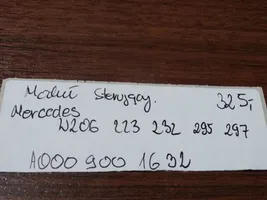 Moduł Sterujący. 325,-
Mercedes
W206 223 232 295 297
A000 900 1632